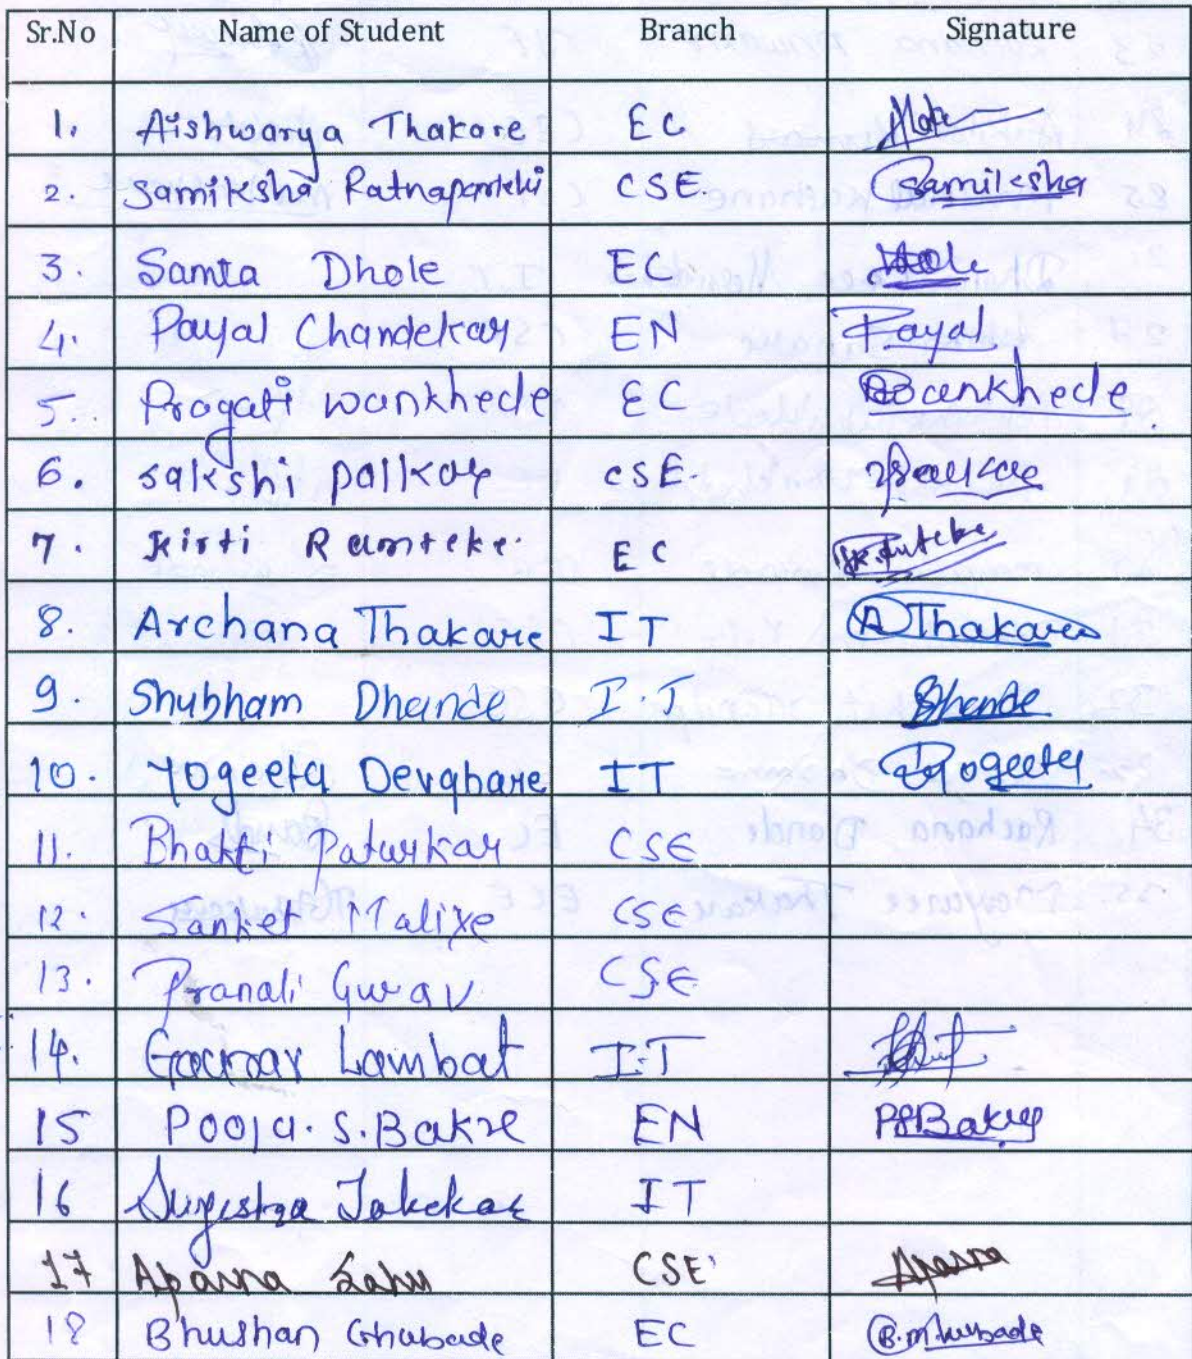 Sr.No Name of Student Branch Signature
1. Aishwarya Thakare EC
2. Samiksha Ratnaparkhi CSE Samiksha
3. Samta Dhole EC
4. Payal Chandekar EN Payal
5. Pragati Wankhede EC Wankhede
6. Sakshi Palkar CSE. Palkar
7. Kirti Ramteke. EC
8. Archana Thakare IT A Thakare
9. Shubham Dhande I.T Dhande
10. Yogeeta Devghare IT Yogeeta
11. Bhakti Paturkar CSE
12. Sanket CSE
13. Pranali Gurav CSE
14. Gaurav Lambat I.T
15 Pooja. S. Bakre EN PSBakre
16 IT
17 Aparna Sahu CSE Aparna
18 Bhushan Ghubade EC B.M Ghubade